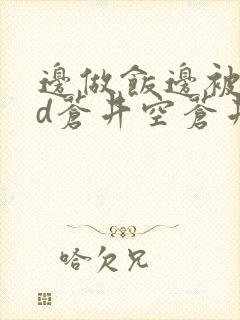 邊做飯邊被
d蒼井空蒼井
哈欠兄